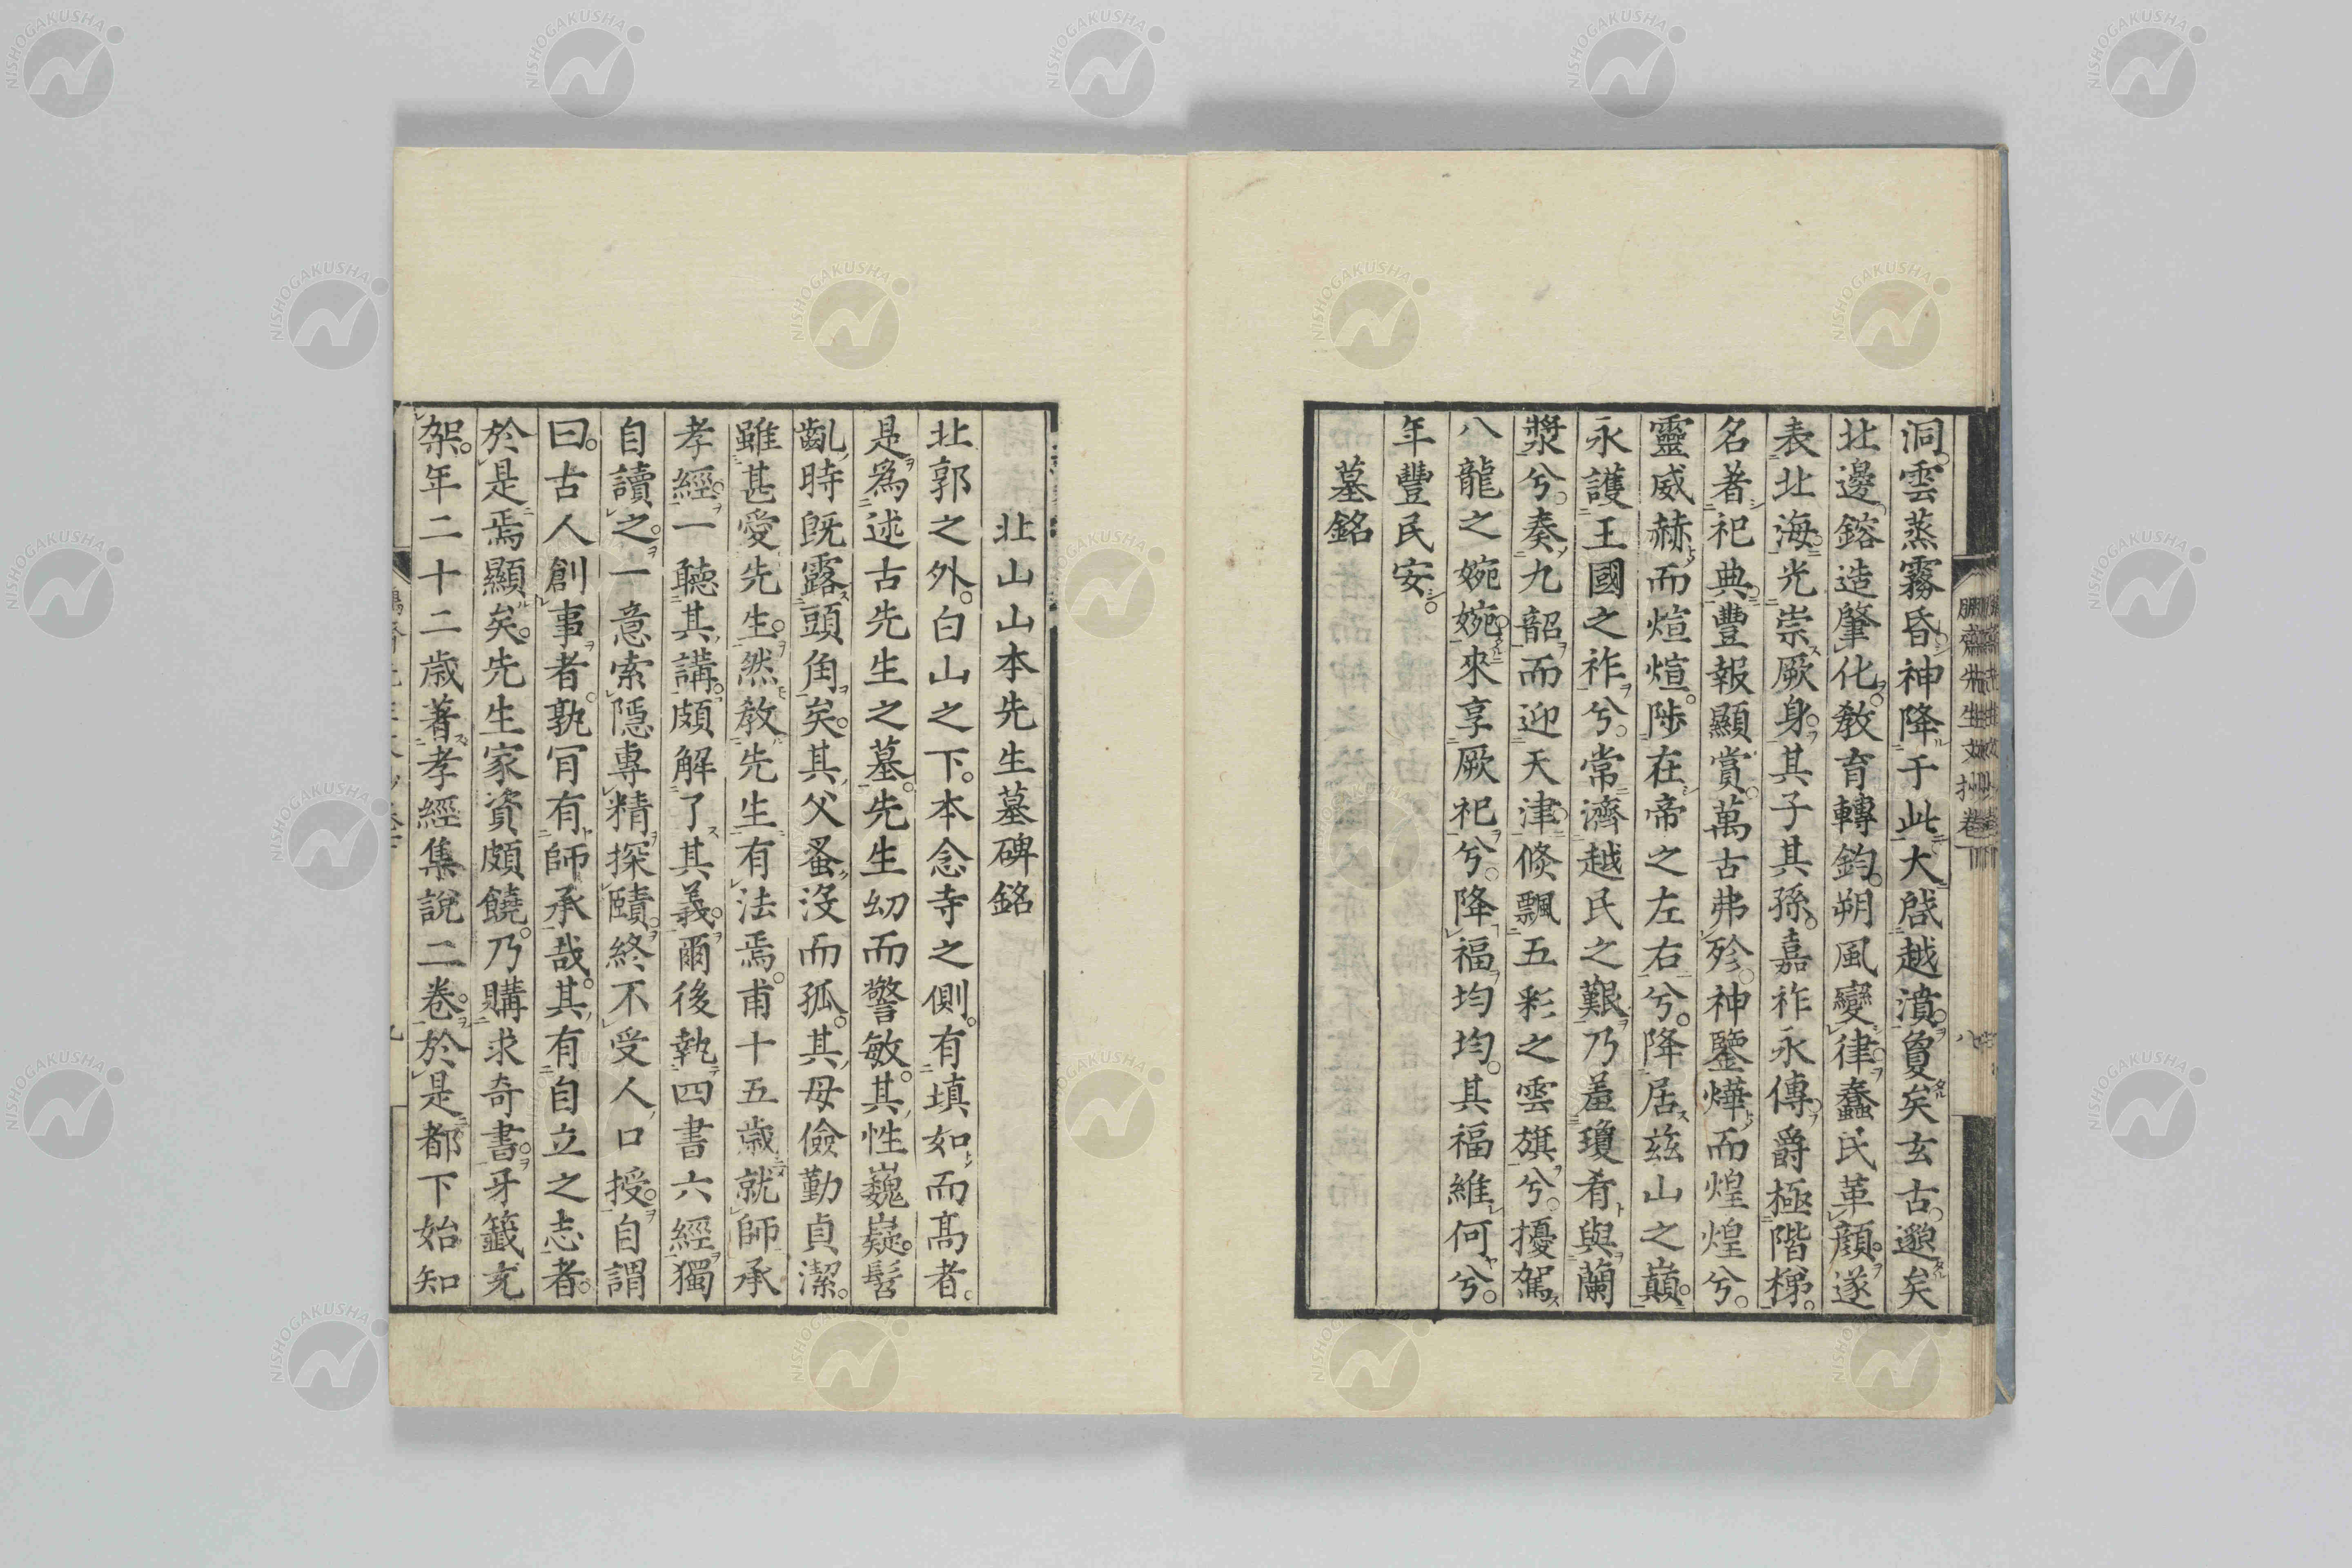 洞。雲蒸霧昏。神降于此。大啓越濆。敻矣玄古。邈矣
北邊。鎔造肇化。敎育轉鈞。朔風變律。蠢民革顔。遂
表北海。光崇厥身。其子其孫。嘉祚永傳。爵極階梯。
名著祀典。豐報顯賞。萬古弗殄。神鑒燁而煌煌兮。
靈威赫而煊煊。陟在帝之左右兮。降居玆山之巓。
永護王國之祚兮。常濟越民之艱。乃羞瓊肴與蘭
漿兮。奏九韶而迎天津。倏飄五彩之雲旗兮。擾駕
八龍之婉婉。來享厥祀兮。降福均均。其福維何兮。
年豐民安。
墓銘
北山山本先生墓碑銘
北郭之外。白山之下。本念寺之側。有塡如而髙者。
是爲述古先生之墓。先生幼而警敏。其性巍嶷。髫
齓時既露頭角矣。其父蚤沒而孤。其母儉勤貞潔。
雖甚愛先生。然敎先生有法焉。甫十五歲就師承
孝經。一聽其講。頗解了其義。爾後執四書六經獨
自讀之。一意索隱專精探賾。終不受人口授。自謂
曰。古人創事者。孰肎有師承哉。其有自立之志者。
於是焉顯矣。先生家資頗饒。乃購求奇書。牙籤充
架。年二十二歲著孝經集說二卷。於是都下始知